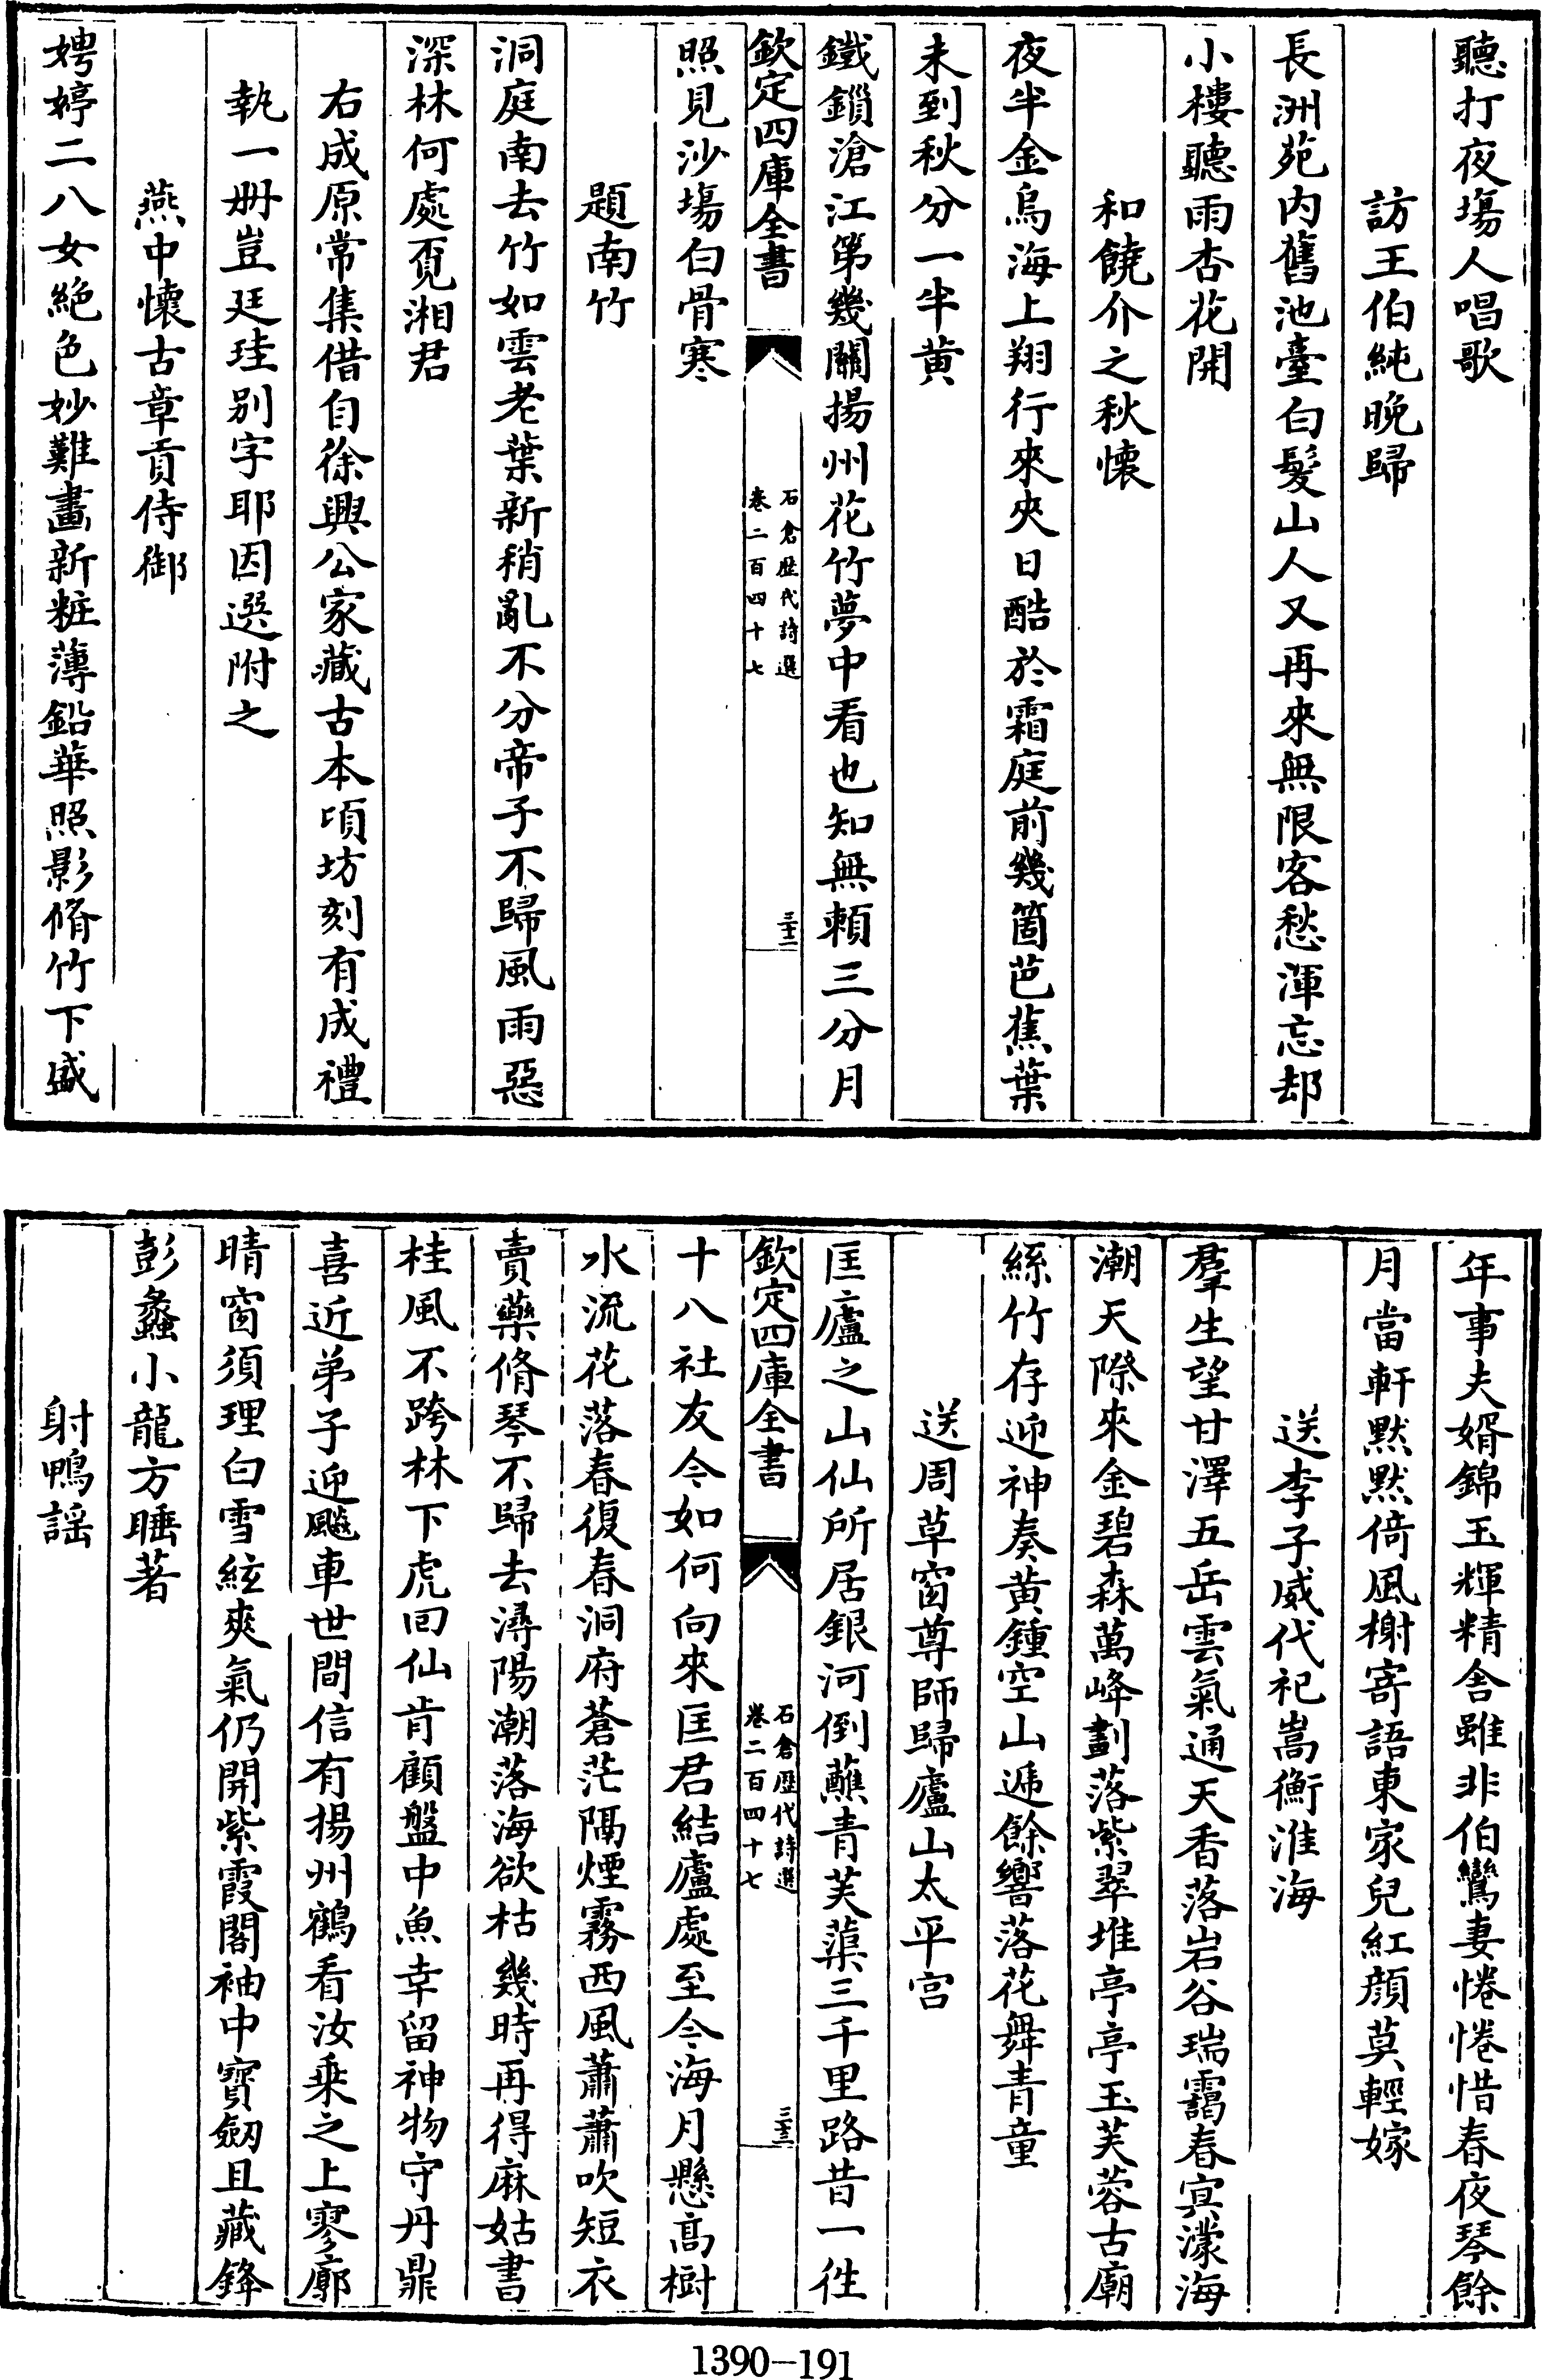 聽打夜塲人唱歌
訪王伯純晚歸
長洲苑内舊池臺白髮山人又再來無限客愁渾忘却
小樓聽雨杏花開
和饒介之秋懐
夜半金烏海上翔行來夾日酷於霜庭前幾箇芭蕉葉
未到秋分一半黄
鐵鎖滄江第幾關揚州花竹夢中看也知無頼三分月
欽定四庫全書
石倉歴代詩選
卷二百四十七
三十二
照見沙塲白骨寒
題南竹
洞庭南去竹如雲老葉新稍亂不分帝子不歸風雨惡
深林何處覓湘君
右成原常集借自徐興公家藏古本頃坊刻有成禮
執一册豈廷珪别字耶因選附之
燕中懐古章貢侍御
娉婷二八女絶色妙難畫新粧薄鉛華照影脩竹下盛
年事夫婿錦玉輝精舎雖非伯鸞妻惓惓惜春夜琴餘
月當軒默默倚風榭寄語東家兒紅顔莫輕嫁
送李子威代祀嵩衡淮海
羣生望甘澤五岳雲氣通天香落岩谷瑞靄春冥濛海
潮天際來金碧森萬峰劃落紫翠堆亭亭玉芙蓉古廟
絲竹存迎神奏黄鍾空山遞餘響落花舞青童
送周草窗尊師歸廬山太平宫
匡廬之山仙所居銀河倒蘸青芙蕖三千里路昔一徃
欽定四庫全書
石倉歴代詩選
卷二百四十七
三十三
十八社友今如何向來匡君結廬處至今海月懸高樹
水流花落春復春洞府蒼茫隔煙霧西風蕭蕭吹短衣
賣藥脩琴不歸去潯陽潮落海欲枯幾時再得麻姑書
桂風不跨林下虎回仙肯顧盤中魚幸留神物守丹鼎
喜近弟子迎飈車世間信有揚州鶴看汝乗之上寥廓
晴窗須理白雪絃爽氣仍開紫霞閣袖中寳劒且藏鋒
彭蠡小龍方睡著
射鴨謡
1390—191